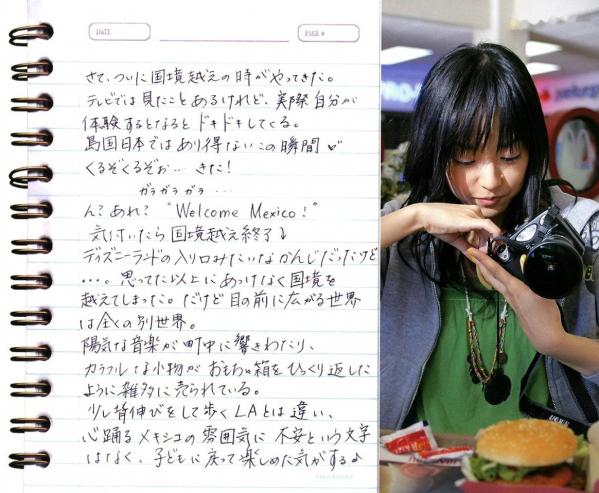 DATE
PAGE #
さて、ついに国境越えの時がやってきた。
テレビでは見たことあるけれど、実際自分が
体験するとなるとドキドキしてくる。
島国日本ではあり得ないこの瞬間♡
くるぞくるぞぉ… きた!
ガラガラガラ …
ん?あれ? "Welcome Mexico!"
気付いたら国境越え終了♩
ディズニーランドの入り口みたいなかんじだったけど
…。思ってた以上にあっけなく国境を
越えてしまった。だけど目の前に広がる世界
は全くの別世界。
陽気な音楽が町中に響きわたり、
カラフルな小物がおもちゃ箱をひっくり返した
ように雑多に売られている。
少し背伸びをして歩くLAとは違い、
心踊るメキシコの雰囲気に不安という文字
はなく、子どもに戻って楽しめた気がする♪
NIKON